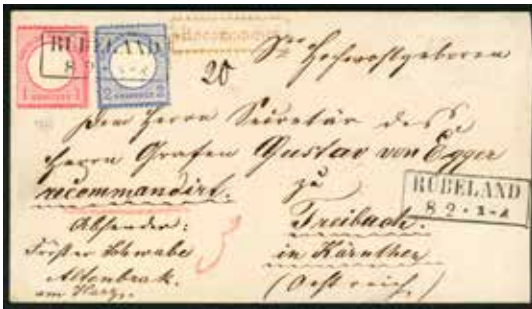 RÜBELAND
8 9 · 3-4
1 1
2 2
Recommandirt
20
Sr. Hochwohlgeboren
dem Herrn Secretär des
Herrn Grafen Gustav von Egger
recommandirt.
zu
Treibach.
in Kärnthen
(Oestreich.)
RÜBELAND
8 9 · 3-4
Absender:
Förster Schwabe
Altenbrak.
am Harz.